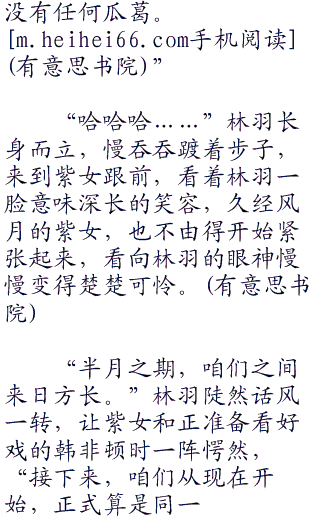 没有任何瓜葛。
[m.heihei66.com手机阅读]
(有意思书院)”
“哈哈哈……”林羽长
身而立，慢吞吞踱着步子，
来到紫女跟前，看着林羽一
脸意味深长的笑容，久经风
月的紫女，也不由得开始紧
张起来，看向林羽的眼神慢
慢变得楚楚可怜。(有意思书
院)
“半月之期，咱们之间
来日方长。”林羽陡然话风
一转，让紫女和正准备看好
戏的韩非顿时一阵愕然，
“接下来，咱们从现在开
始，正式算是同一